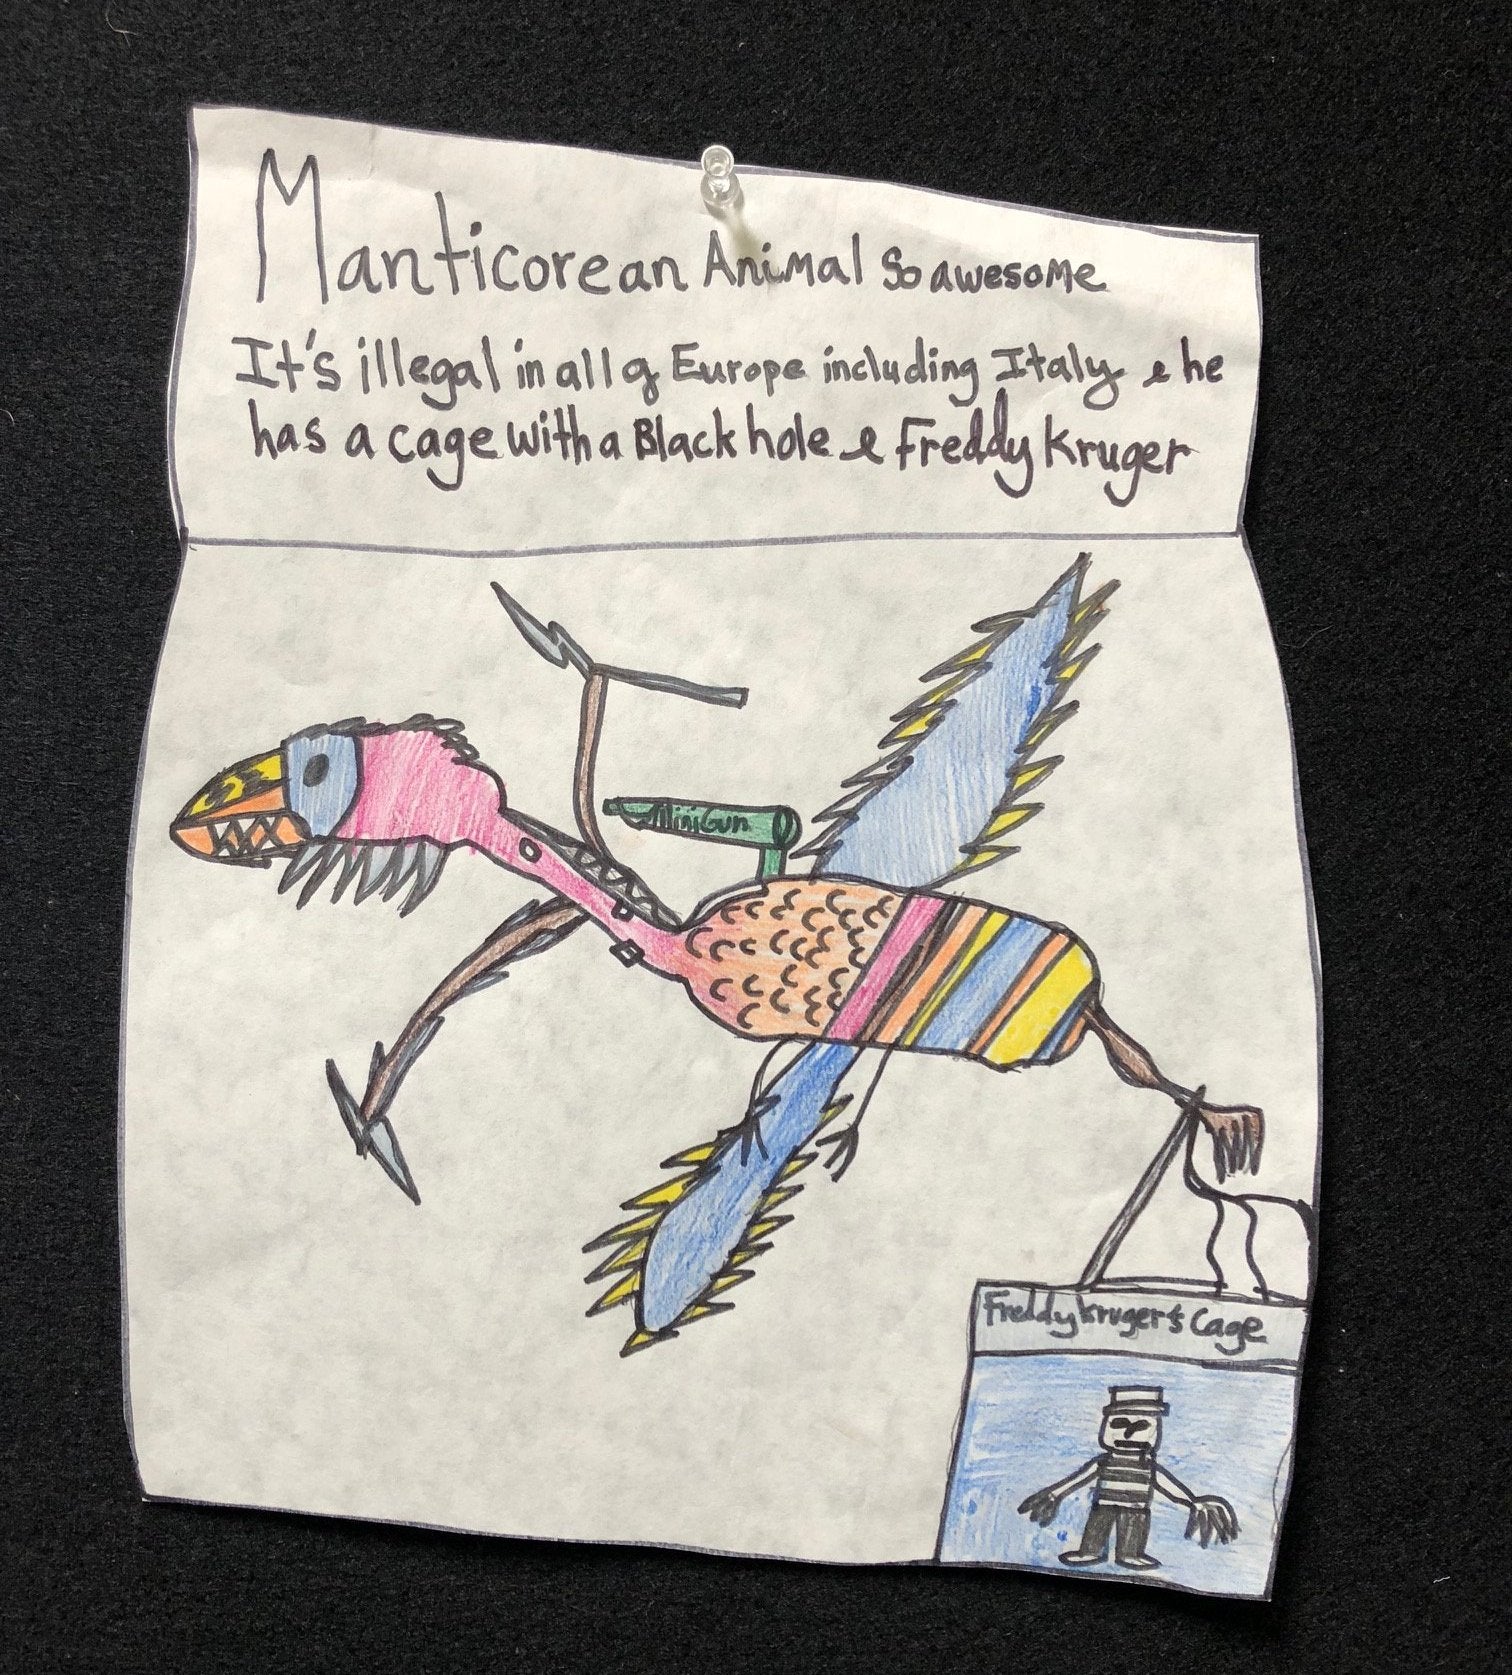 Manticorean Animal so awesome
It's illegal in all of Europe including Italy & he
has a cage with a Black hole & Freddy Kruger
MiniGun
Freddy Kruger's Cage